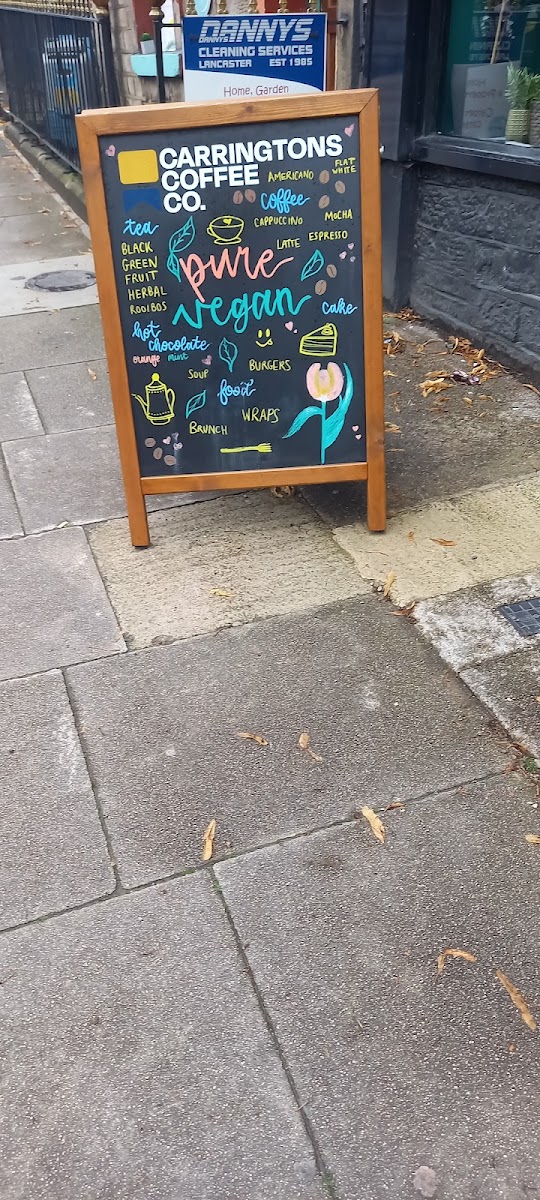 DANNYS
CLEANING SERVICES
LANCASTER EST 1985
Home, Garden
CARRINGTONS
COFFEE
CO.
AMERICANO
FLAT WHITE
coffee
CAPPUCCINO
MOCHA
LATTE
ESPRESSO
tea
BLACK
GREEN
FRUIT
HERBAL
ROOIBOS
pure
vegan
cake
hot
chocolate
orange mint
SOUP
BURGERS
food
WRAPS
BRUNCH